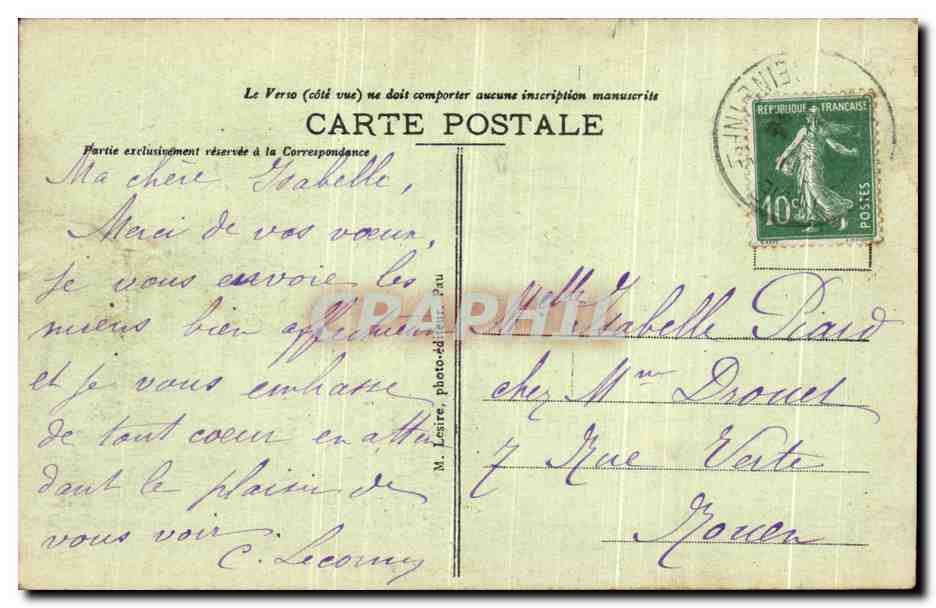 Le Verso (côté vue) ne doit comporter aucune inscription manuscrite
CARTE POSTALE
Partie exclusivement réservée à la Correspondance
Ma chère Isabelle,
Merci de vos vœux,
je vous envoie les
miens bien
et je vous embrasse
de tout cœur en atten
dant le plaisir de
vous voir.
C.
M. Lesire, photo-éditeur, Pau
REPUBLIQUE FRANÇAISE
10c
POSTES
Melle Isabelle Piard
chez Mme Drouet
7 Rue Verte
Rouen
CPAPHIL